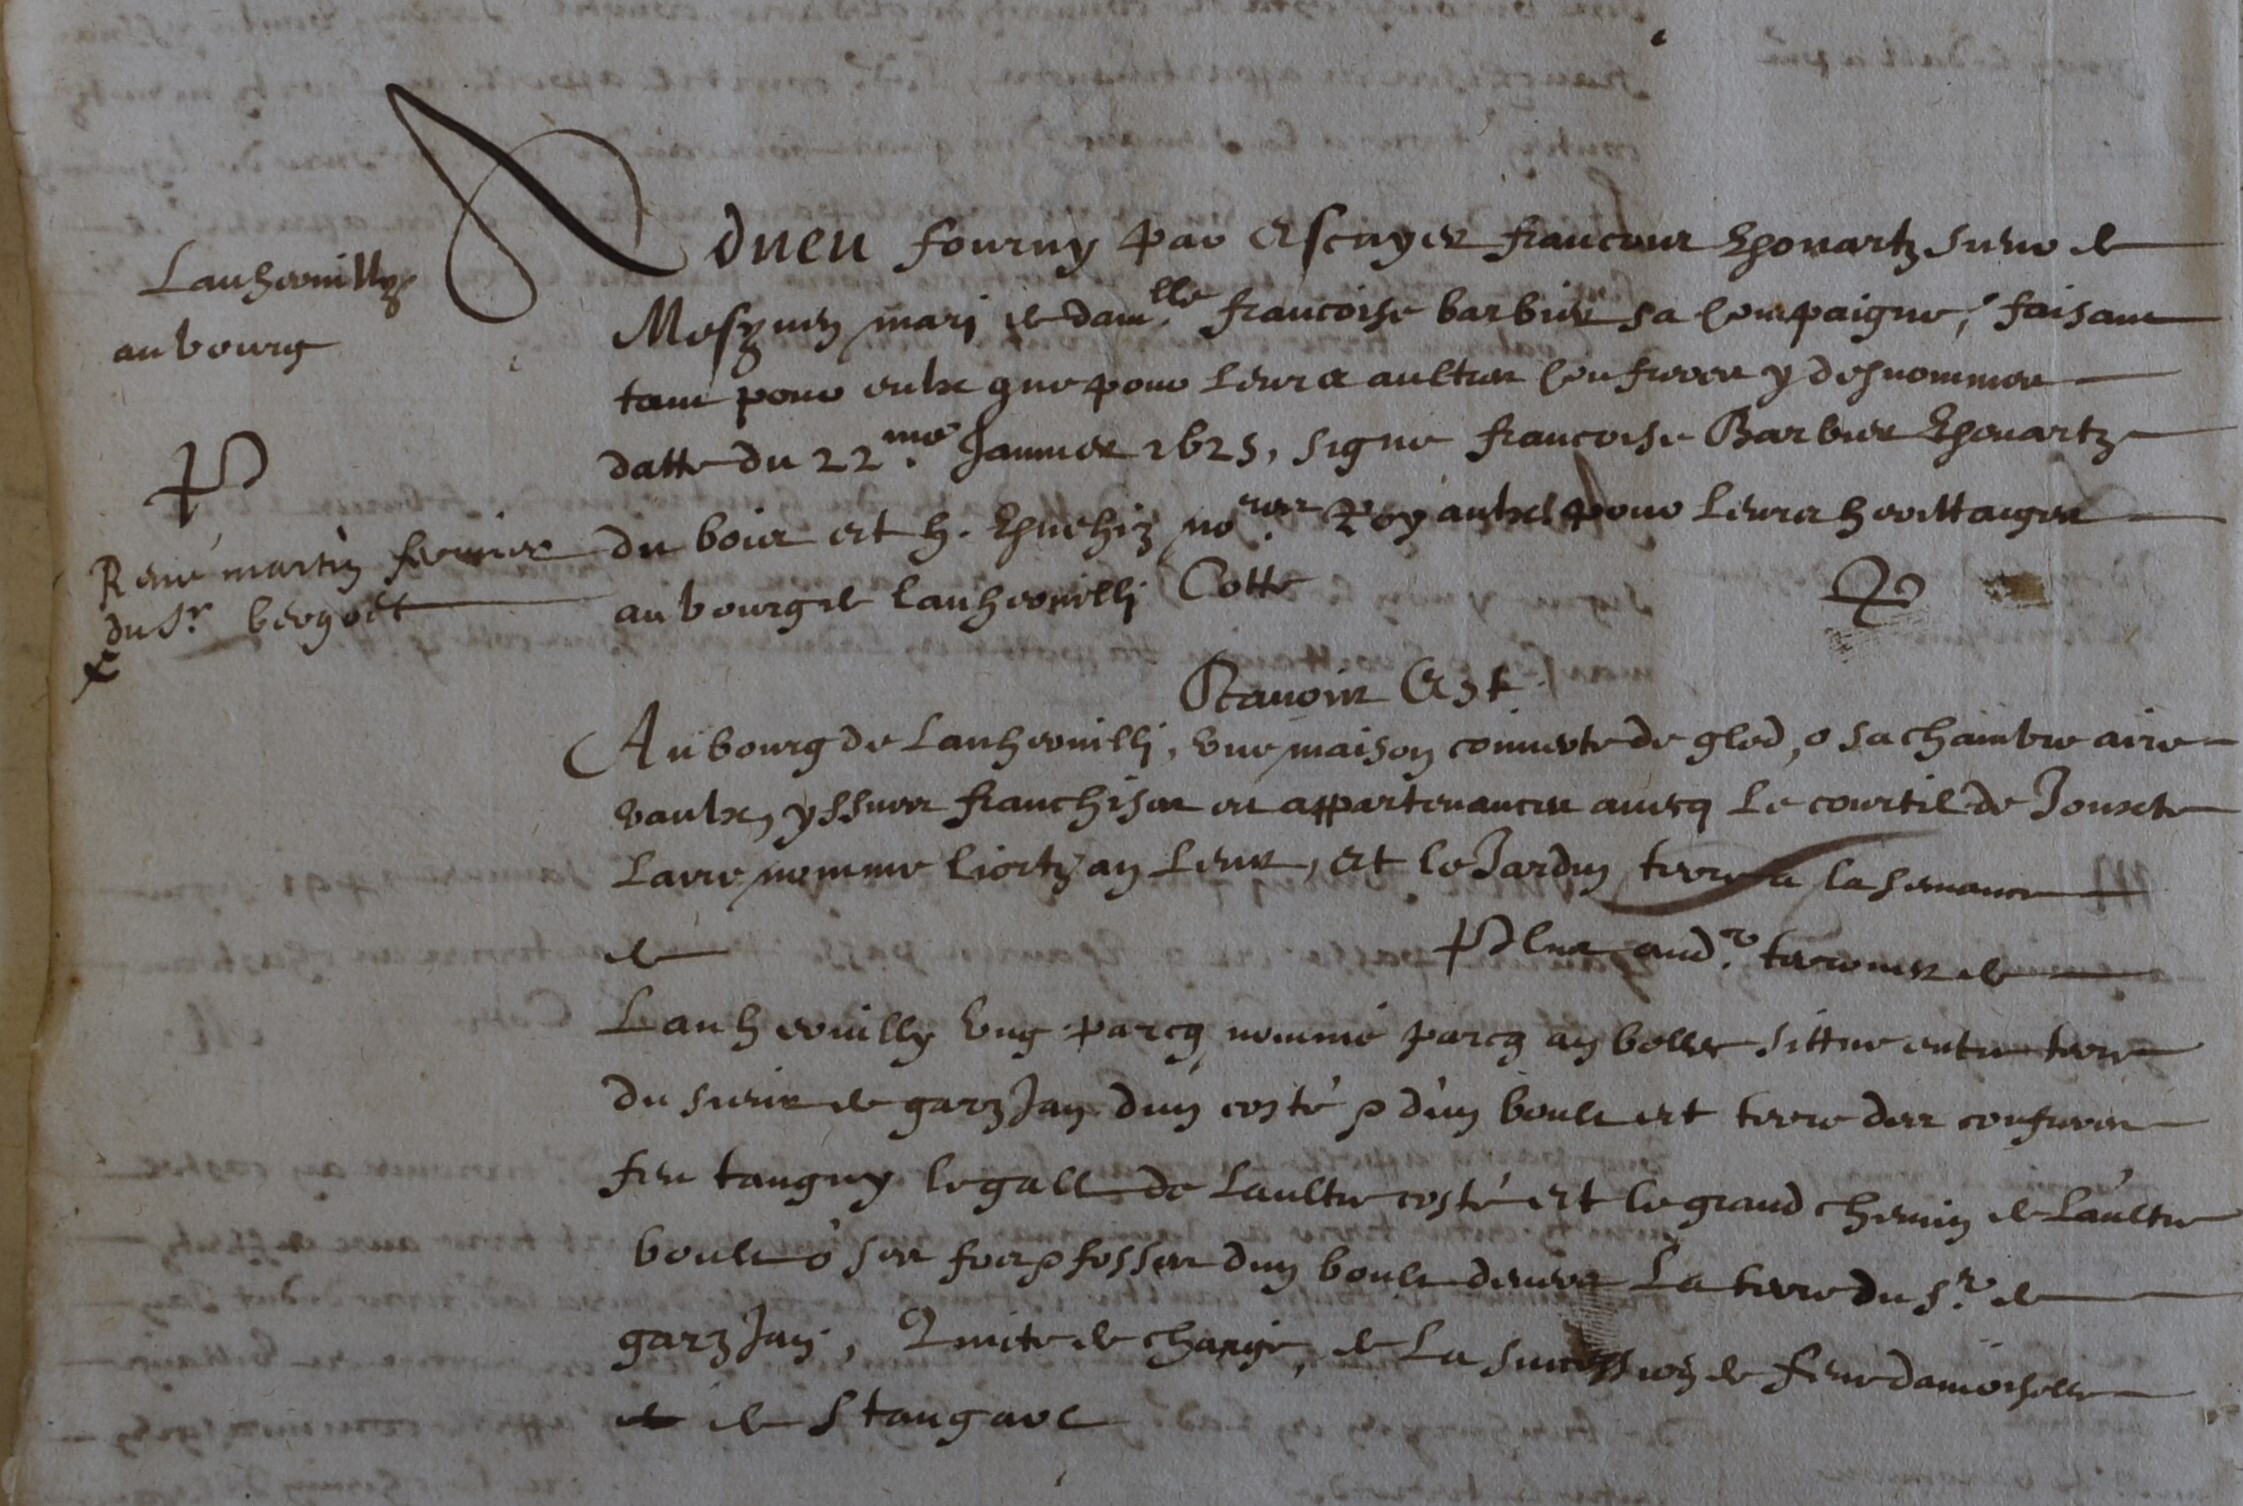 Lanhervilly
au bourg
P
René martin fermier
du Sr bergoët
Adveu fourny par Escuyer francour Khouartz sieur de
Mesguen mari de damlle francoise barbier sa compaigne, faisant
tant pour eulx que pour leurs aultres consors y desnommes
datte du 22me Janvier 1625, signe francoise Barbier Khouartz
du bois et h. notres Royaulx pour leurs herittaiges
au bourg de lanhervilli Cotte
P
Scavoir Est
Au bourg de Lanhervilli, une maison couverte de gled, o sa chambre aire
vaulx, yssues franchises et appartenances avecq le courtil de Jouxte
Laire nomme liortz an Leur, et le Jardin terre a la semance
de Plus audt terouer de
Lanhervilly ung parcq nommé parcq an sittue entre terre
du sieur de garzJan dun costé & dun boult et terre des consors
feu tanguy le gall de laultre costé et le grand chemin de laultre
boult o ses foes & fosses dun boult devers La terre du Sr de
garzJan, Quicte de charge, de La succession de feue damoiselle
de Stangave